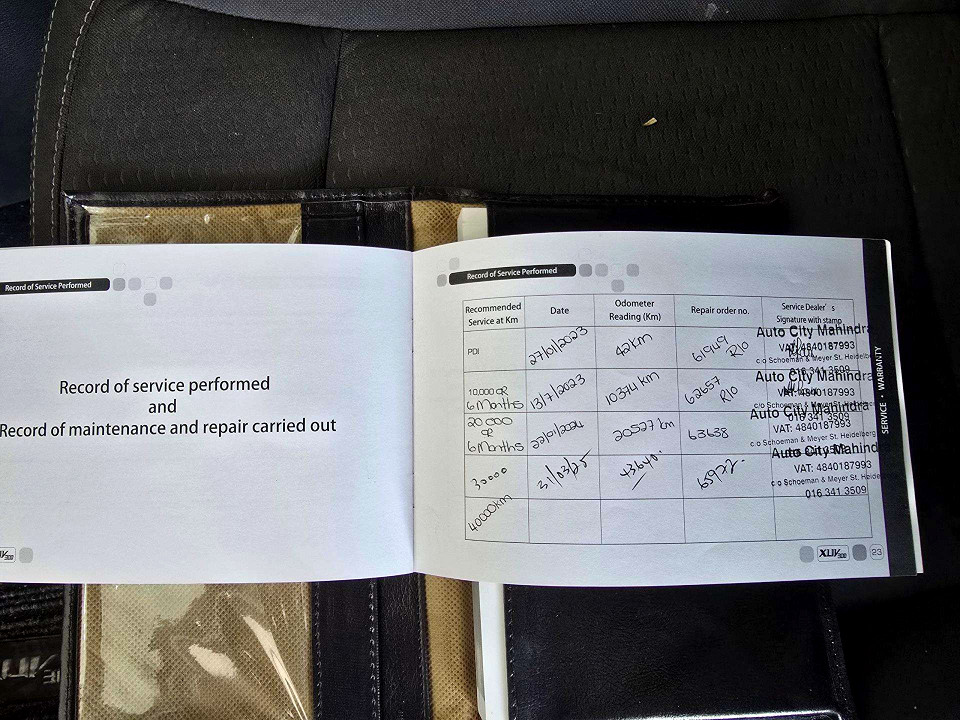 Record of Service Performed
Record of service performed
and
Record of maintenance and repair carried out
Record of Service Performed
Recommended Service at Km Date Odometer Reading (Km) Repair order no. Service Dealer's Signature with stamp
PDI 27/01/2023 42km 61949 R10
Auto City Mahindra
VAT: 4840187993
c/o Schoeman & Meyer St. Heidelb
016 341 3509
10,000 OR 6 Months 13/7/2023 10374 km 62657 R10
Auto City Mahindra
VAT: 4840187993
c/o Schoeman & Meyer St. Heidelberg
016 341 3509
20 000 OR 6 Months 22/01/2024 20527 km 63638
Auto City Mahindra
VAT: 4840187993
c/o Schoeman & Meyer St. Heidelberg
30000 31/03/25 43640.
Auto City Mahind
VAT: 4840187993
c/o Schoeman & Meyer St. Heidelberg
016 341 3509
40000km
SERVICE • WARRANTY
XUV300 23